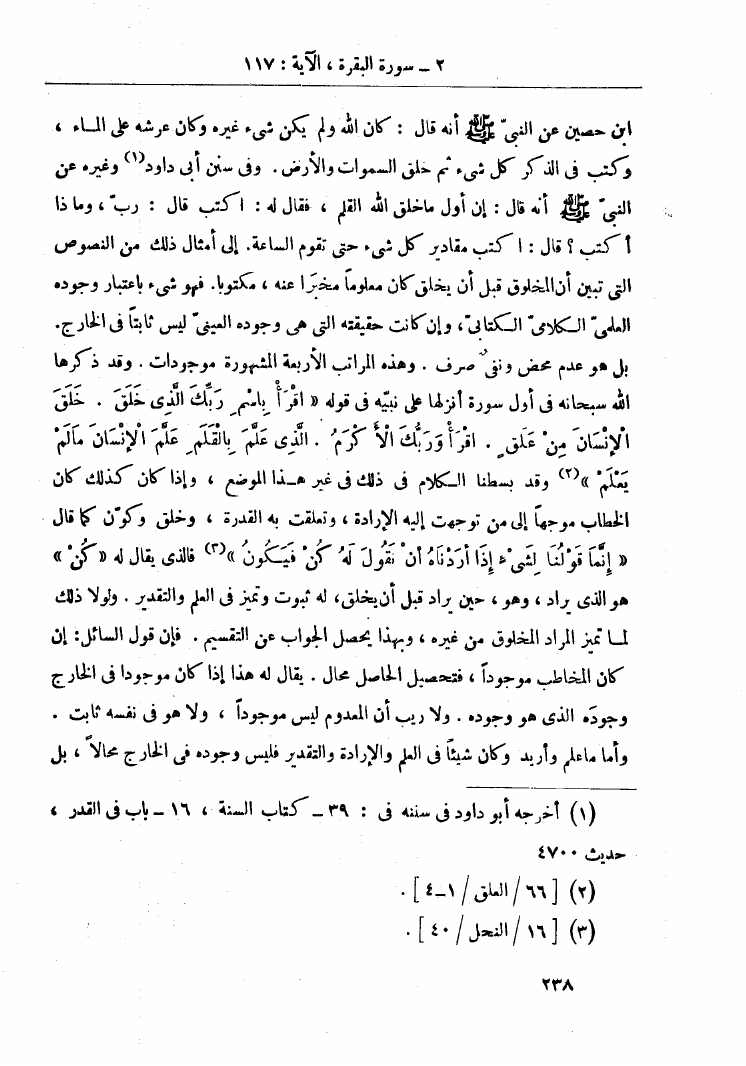 ٢ ــ سورة البقرة ، الآية : ١١٧
ابن حصين عن النبيّ ﷺ أنه قال : كان الله ولم يكن شىء غيره وكان عرشه على المـاء ،
وكتب فى الذكر كل شىء ثم خلق السموات والأرض . وفى سنن أبى داود(١) وغيره عن
النبيّ ﷺ أنه قال : إن أول ماخلق الله القلم ، فقال له : اكتب قال : ربّ ، وما ذا
أكتب ؟ قال : اكتب مقادير كل شىء حتى تقوم الساعة. إلى أمثال ذلك من النصوص
التى تبين أن المخلوق قبل أن يخلق كان معلوماً مخبَرا عنه ، مكتوبا. فهو شىء باعتبار وجوده
العلمىّ الـكلامىّ الـكتابىّ، وإن كانت حقيقته التى هى وجوده العينىّ ليس ثابتاً فى الخارج.
بل هو عدم محض ونفىٌ صرف . وهذه المراتب الأربعة المشهورة موجودات . وقد ذكرها
الله سبحانه فى أول سورة أنزلها على نبيّه فى قوله « اقْرَأْ بِاسْمِ رَبِّكَ الَّذِى خَلَقَ . خَلَقَ
الْإِنْسَانَ مِنْ عَلَقٍ . اقْرَأْ وَرَبُّكَ الْأَكْرَمُ . الَّذِى عَلَّمَ بِالْقَلَمِ عَلَّمَ الْإِنْسَانَ مَالَمْ
يَعْلَمْ »(٢) وقد بسطنا الـكلام فى ذلك فى غير هـذا الموضع ، وإذا كان كذلك كان
الخطاب موجهاً إلى من توجهت إليه الإرادة ، وتعلقت به القدرة ، وخلق وكوّن كما قال
« إِنَّمَا قَوْلُنَا لِشَىْءٍ إِذَا أَرَدْنَاهُ أَنْ نَقُولَ لَهُ كُنْ فَيَـكُونُ »(٣) فالذى يقال له « كُنْ »
هو الذى يراد ، وهو ، حين يراد قبل أن يخلق، له ثبوت وتميز فى العلم والتقدير . ولولا ذلك
لمـا تميز المراد المخلوق من غيره ، وبهذا يحصل الجواب عن التقسيم . فإن قول السائل : إن
كان المخاطب موجوداً ، فتحصيل الحاصل محال . يقال له هذا إذا كان موجودا فى الخارج
وجودَه الذى هو وجوده . ولا ريب أن المعدوم ليس موجوداً ، ولا هو فى نفسه ثابت .
وأما ماعلم وأريد وكان شيئاً فى العلم والإرادة والتقدير فليس وجوده فى الخارج محالاً ، بل
(١) أخرجه أبو داود فى سننه فى : ٣٩ ــ كتاب السنة ، ١٦ ــ باب فى القدر ،
حديث ٤٧٠٠
(٢) [ ٩٦ / العلق / ١ــ٤ ] .
(٣) [ ١٦ / النحل / ٤٠ ] .
٢٣٨